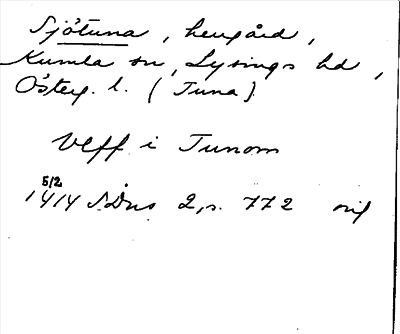 Sjötuna, herrgård,
Kumla sn, Lysings hd,
Österg. l. (Tuna)
Vlff i Tunom
5/2
1414 SDns 2, s. 772 orig